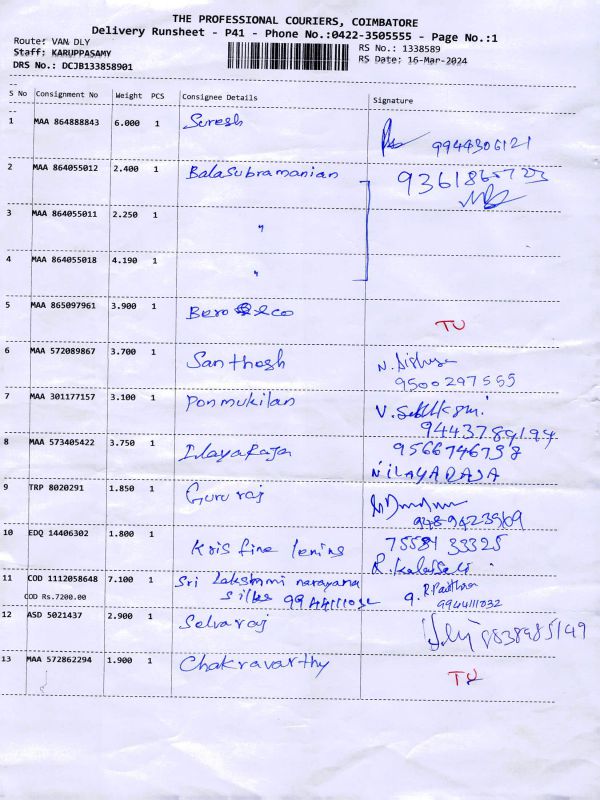 THE PROFESSIONAL COURIERS, COIMBATORE
Delivery Runsheet - P41 - Phone No.:0422-3505555 - Page No.:1
Route: VAN DLY
Staff: KARUPPASAMY
DRS No.: DCJB133858901
RS No.: 1338589
RS Date: 16-Mar-2024
S No Consignment No Weight PCS Consignee Details Signature
1 MAA 864888843 6.000 1 Suresh 9944306121
2 MAA 864055012 2.400 1 BalaSubramanian 9361865723
3 MAA 864055011 2.250 1 "
4 MAA 864055018 4.190 1 "
5 MAA 865097961 3.900 1 TU
6 MAA 572089867 3.700 1 Santhosh
9500297555
7 MAA 301177157 3.100 1 Ponmukilan
9443784194
8 MAA 573405422 3.750 1 IlayaRaja 9566746738
NILAYARAJA
9 TRP 8020291 1.850 1 Gururaj
10 EDQ 14406302 1.800 1 Kris fine lenins 75584 33325
11 COD 1112058648 7.100 1 Sri Lakshmi narayana
COD Rs.7200.00 Silks 9944111032 9944111032
12 ASD 5021437 2.900 1 Selvaraj 9838985149
13 MAA 572862294 1.900 1 Chakravarthy TU